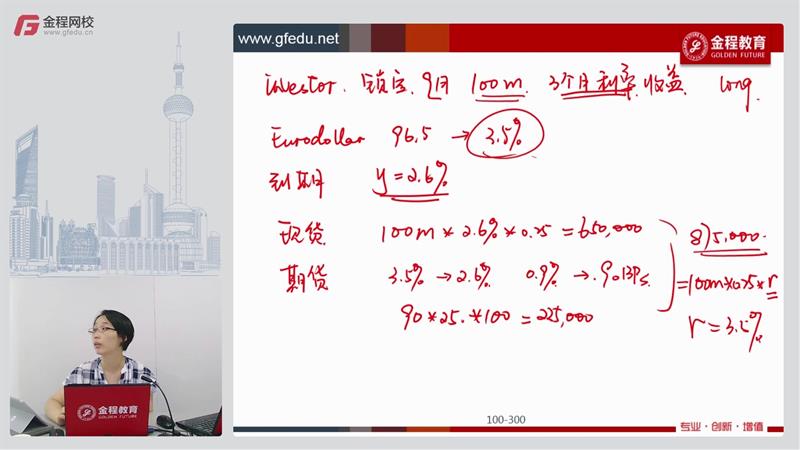 金程网校
www.gfedu.cn
www.gfedu.net
金程教育
GOLDEN FUTURE
investor. 锁定 9月 100m. 3个月利率收益 long.
Eurodollar 96.5 → 3.5%
到期 y=2.6%
现货 100m*2.6%*0.25=650,000
875,000.
期货 3.5%→2.6% 0.9%→90bps.
=100m*0.25*r
90*25.*100=225,000
r=3.5%
金程教育
GOLDEN FUTURE
100-300
专业·创新·增值